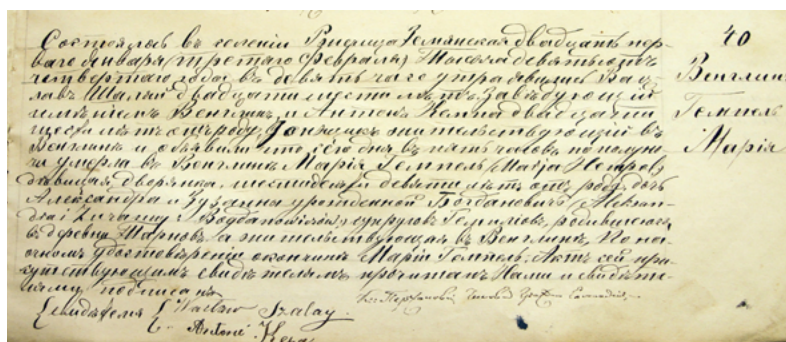 Состоялось въ селеніи Висница Земянская двадцать пер-
ваго Января (третяго Февраля) тысяча девятьсотъ
четвертаго года въ девять часовъ утра явились Вац-
лавъ Шалай двадцати шести лѣтъ, Завѣдующій
имѣніемъ Венглинъ и Антонъ Кемпа двадцати
шести лѣтъ отъ роду, жительствующій въ
Венглинѣ и объявили что сего дня въ пять часовъ по полуно-
чи умерла въ Венглинѣ Марія Гемпель (Marja Hempel)
дѣвица, дворянка, шестидесяти девяти лѣтъ отъ роду, дочь
Александра и Зузанны урожденной Богдановичъ (Aleksan-
dra i Zuzanny z Bogdanowiczów) супруговъ Гемпелевъ, родившаяся
въ деревнѣ а жительствующая въ Венглинѣ. По на-
очномъ удостовѣреніи о кончинѣ Маріи Гемпель. Актъ сей при-
сутствующимъ свидѣтелямъ прочитанъ Нами и свидѣте-
лями подписанъ
Свидѣтели Wacław Szalay.
Antoni Kępa
40
Венглинъ
Гемпель
Марія